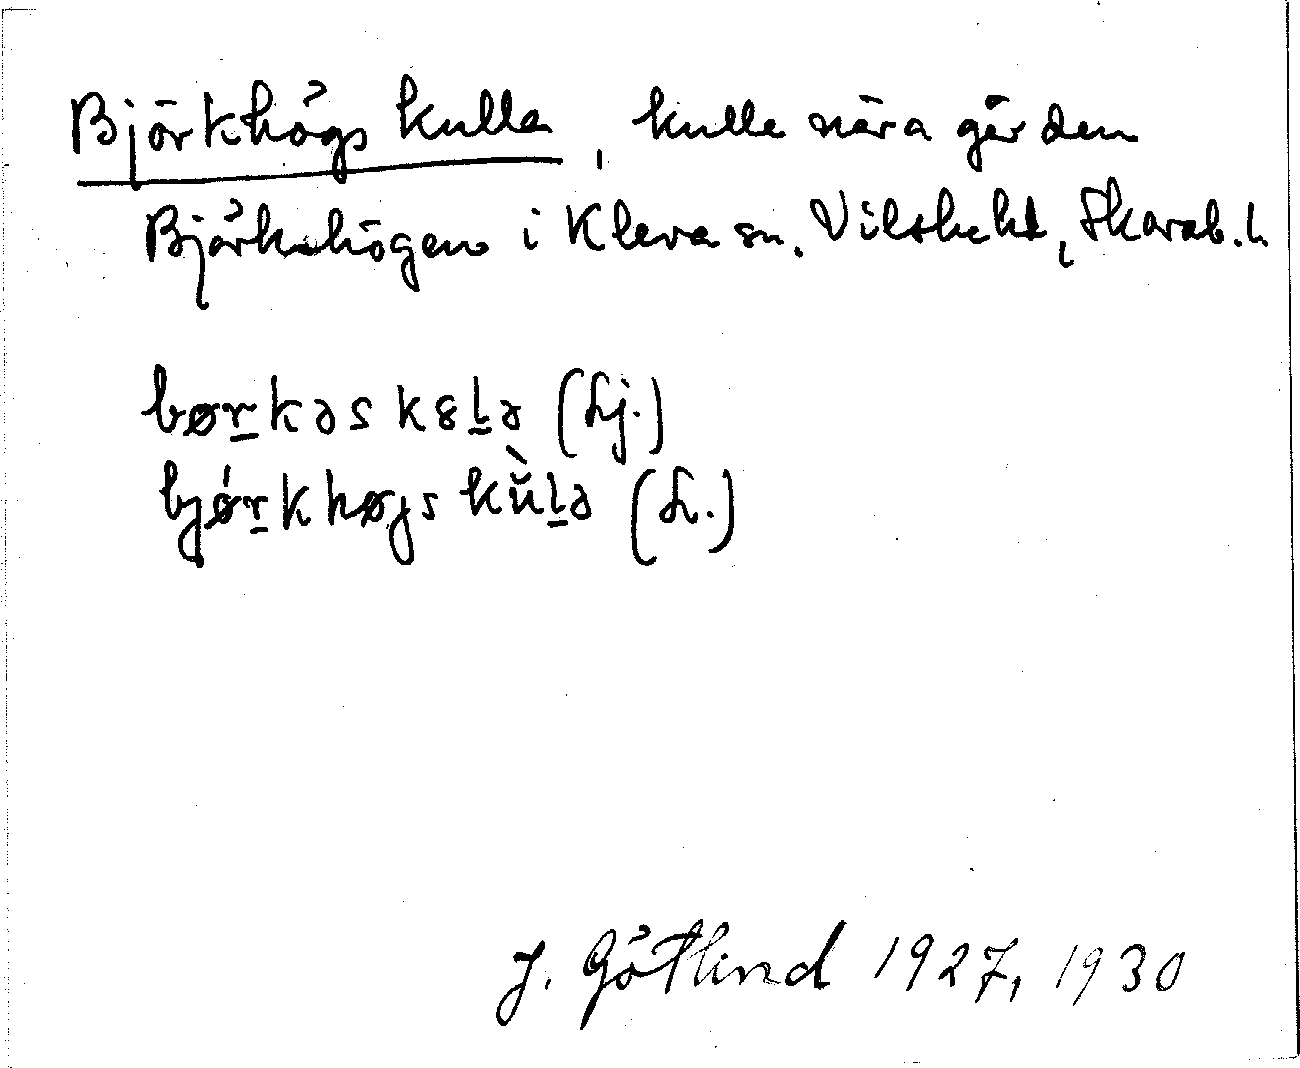 Björkhögs kulla, kulle nära gården
Björkhögen i Kleva sn. Vilske hd, Skarab. l.
børkəs k8lə (Lj.)
bjǿrkhøgs kùlə (L.)
J. Götlind 1927, 1930